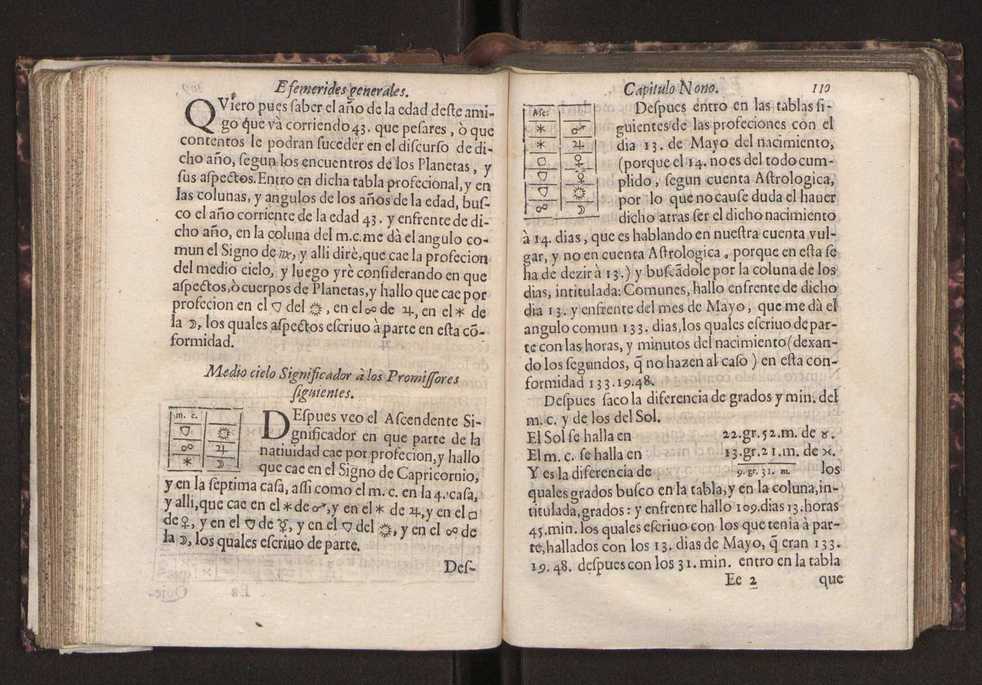 Efemerides generales.
QViero pues ſaber el año de la edad deſte ami-
go q̃ue và corriendo 43. que peſares, ò que
contentos le podran ſuceder en el diſcurſo de di-
cho año, ſegun los encuentros de los Planetas, y
ſus aſpectos. Entro en dicha tabla profecional, y en
las colunas, y angulos de los años de la edad, buſ-
co el año corriente de la edad 43. y enfrente de di-
cho año, en la coluna del m.c. me dà el angulo co-
mun el Signo de ♍, y alli dirè, que cae la profecion
del medio cielo, y luego yrè conſiderando en que
aſpectos, ò cuerpos de Planetas, y hallo que cae por
profecion en el ▽ del ☼, en el ☍ de ♃, en el * de
la ☽, los quales aſpectos eſcriuo à parte en eſta cõ-
formidad.
Medio cielo Significador à los Promiſſores
ſiguientes.
m. c.
▽ ☼
☍ ♃
* ☽
DEſpues veo el Aſcendente Si-
gnificador en que parte de la
natiuidad cae por profecion, y hallo
que cae en el Signo de Capricornio,
y en la ſeptima caſa, aſſi como el m.c. en la 4. caſa,
y alli, que cae en el * de ♂, y en el * de ♃, y en el □
de ♀, y en el ▽ de ☿, y en el ▽ del ☼, y en el ☍ de
la ☽, los quales eſcriuo de parte.
Deſ-
Capitulo Nono. 110
Aſc.
* ♂
* ♃
□ ♀
▽ ☿
▽ ☼
☍ ☽
Deſpues entro en las tablas ſi-
guientes de las profeciones con el
dia 13. de Mayo del nacimiento,
(porque el 14. no es del todo cum-
plido, ſegun cuenta Aſtrologica,
por lo que no cauſe duda el hauer
dicho atras ſer el dicho nacimiento
à 14. dias, que es hablando en nueſtra cuenta vul-
gar, y no en cuenta Aſtrologica, porque en eſta ſe
ha de dezir à 13.) y buſcãdole por la coluna de los
dias, intitulada: Comunes, hallo enfrente de dicho
dia 13. y enfrente del mes de Mayo, que me dà el
angulo comun 133. dias, los quales eſcriuo de par-
te con las horas, y minutos del nacimiento (dexan-
do los ſegundos, q̃ no hazen al caſo) en eſta con-
formidad 133.19.48.
Deſpues ſaco la diferencia de grados y min. del
m. c. y de los del Sol.
El Sol ſe halla en 22.gr.52.m. de ♉.
El m. c. ſe halla en 13.gr.21.m. de ♓.
Y es la diferencia de 9. gr. 31. m. los
quales grados buſco en la tabla, y en la coluna, in-
titulada, grados: y enfrente hallo 109. dias 13. horas
45. min. los quales eſcriuo con los que tenia à par-
te, hallados con los 13. dias de Mayo, q̃ eran 133.
19. 48. deſpues con los 31. min. entro en la tabla
Ee 2 que